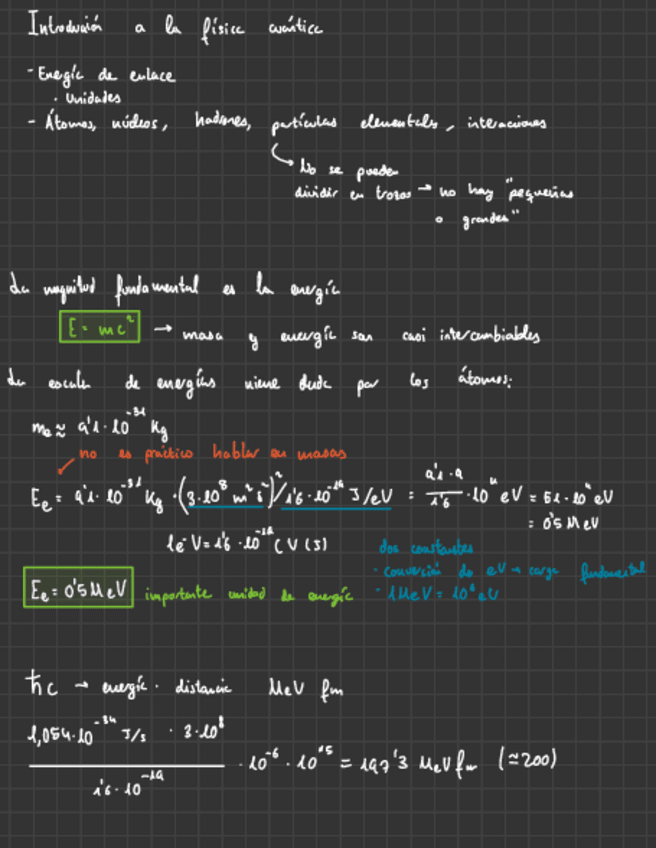 Introducción a la física cuántica
- Energía de enlace
· Unidades
- Átomos, núcleos, hadrones, partículas elementales, interacciones
No se pueden
dividir en trozos → no hay "pequeñas
o grandes"
La magnitud fundamental es la energía
E = mc² → masa y energía son casi intercambiables
La escala de energías viene dada por los átomos:
me ≈ 9'1·10⁻³¹ Kg
no es práctico hablar en masas
Ee = 9'1·10⁻³¹ Kg · (3·10⁸ m s⁻¹)² / 1'6·10⁻¹⁹ J/eV = 9'1·9 / 1'6 · 10⁴ eV = 51·10⁴ eV
= 0'5 MeV
1e⁻V = 1'6·10⁻¹⁹ C V (J)
dos constantes
· conversión de eV → carga fundamental
· 1 MeV = 10⁶ eV
Ee = 0'5 MeV importante unidad de energía
ħc → energía · distancia MeV fm
1,054·10⁻³⁴ J/s · 3·10⁸
1'6·10⁻¹⁹
· 10⁻⁶ · 10¹⁵ = 197'3 MeV fm (≃200)